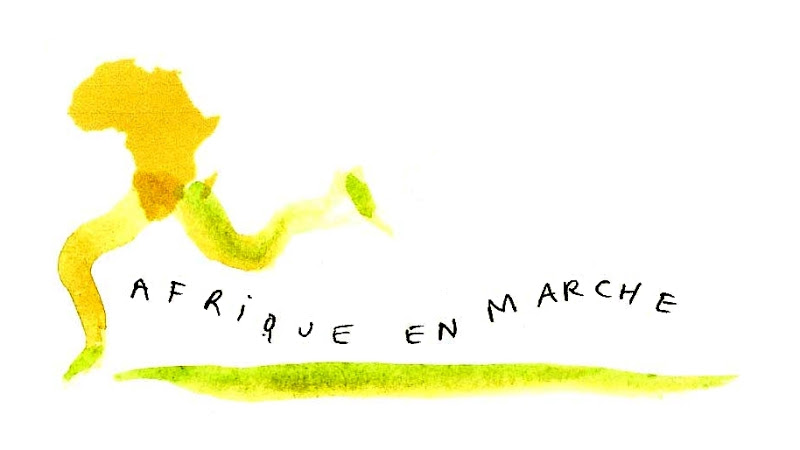 AFRiQUE EN MARCHE